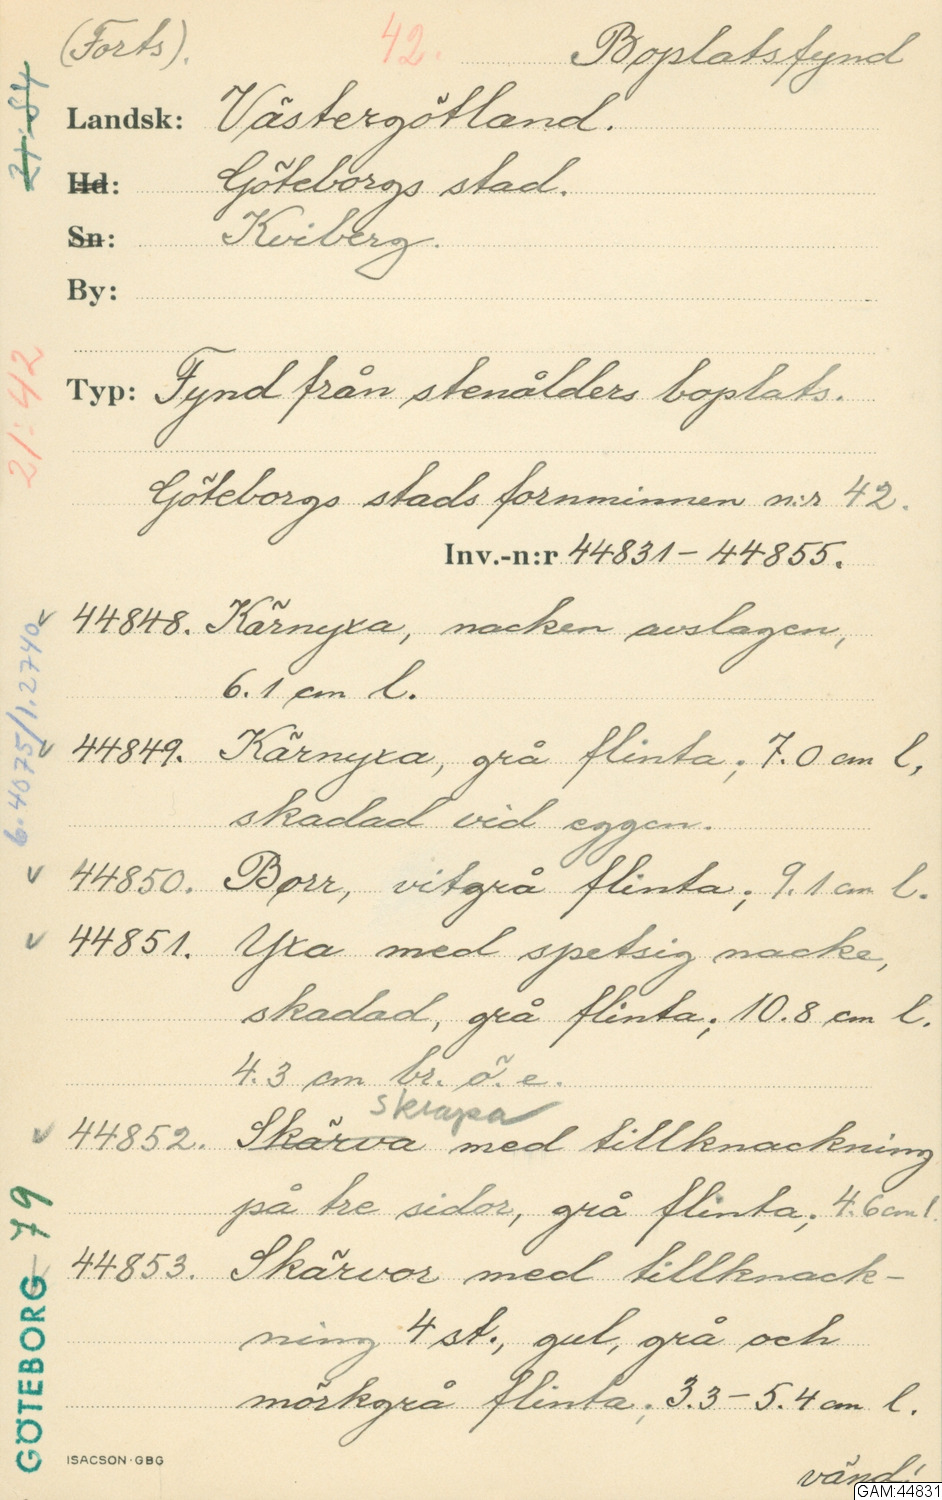 (Forts). 42. Boplatsfynd
21:84
Landsk: Västergötland.
Hd: Göteborgs stad.
Sn: Kviberg.
By:
21:42
Typ: Fynd från stenålders boplats.
Göteborgs stads fornminnen n:r 42.
Inv.-n:r 44831-44855.
6.4075/1.2740
44848. Kärnyxa, nacken avslagen,
6.1 cm l.
44849. Kärnyxa, grå flinta; 7.0 cm l,
skadad vid eggen.
44850. Borr, vitgrå flinta; 9.1 cm l.
44851. Yxa med spetsig nacke,
skadad, grå flinta; 10.8 cm l.
4.3 cm br. ö. e.
skrapa
44852. Skärva med tillknackning
på tre sidor, grå flinta; 4.6 cm l.
44853. Skärvor med tillknack-
ning 4 st., gul, grå och
mörkgrå flinta; 3.3-5.4 cm l.
GÖTEBORG 79
ISACSON·GBG
vänd!
GAM:44831